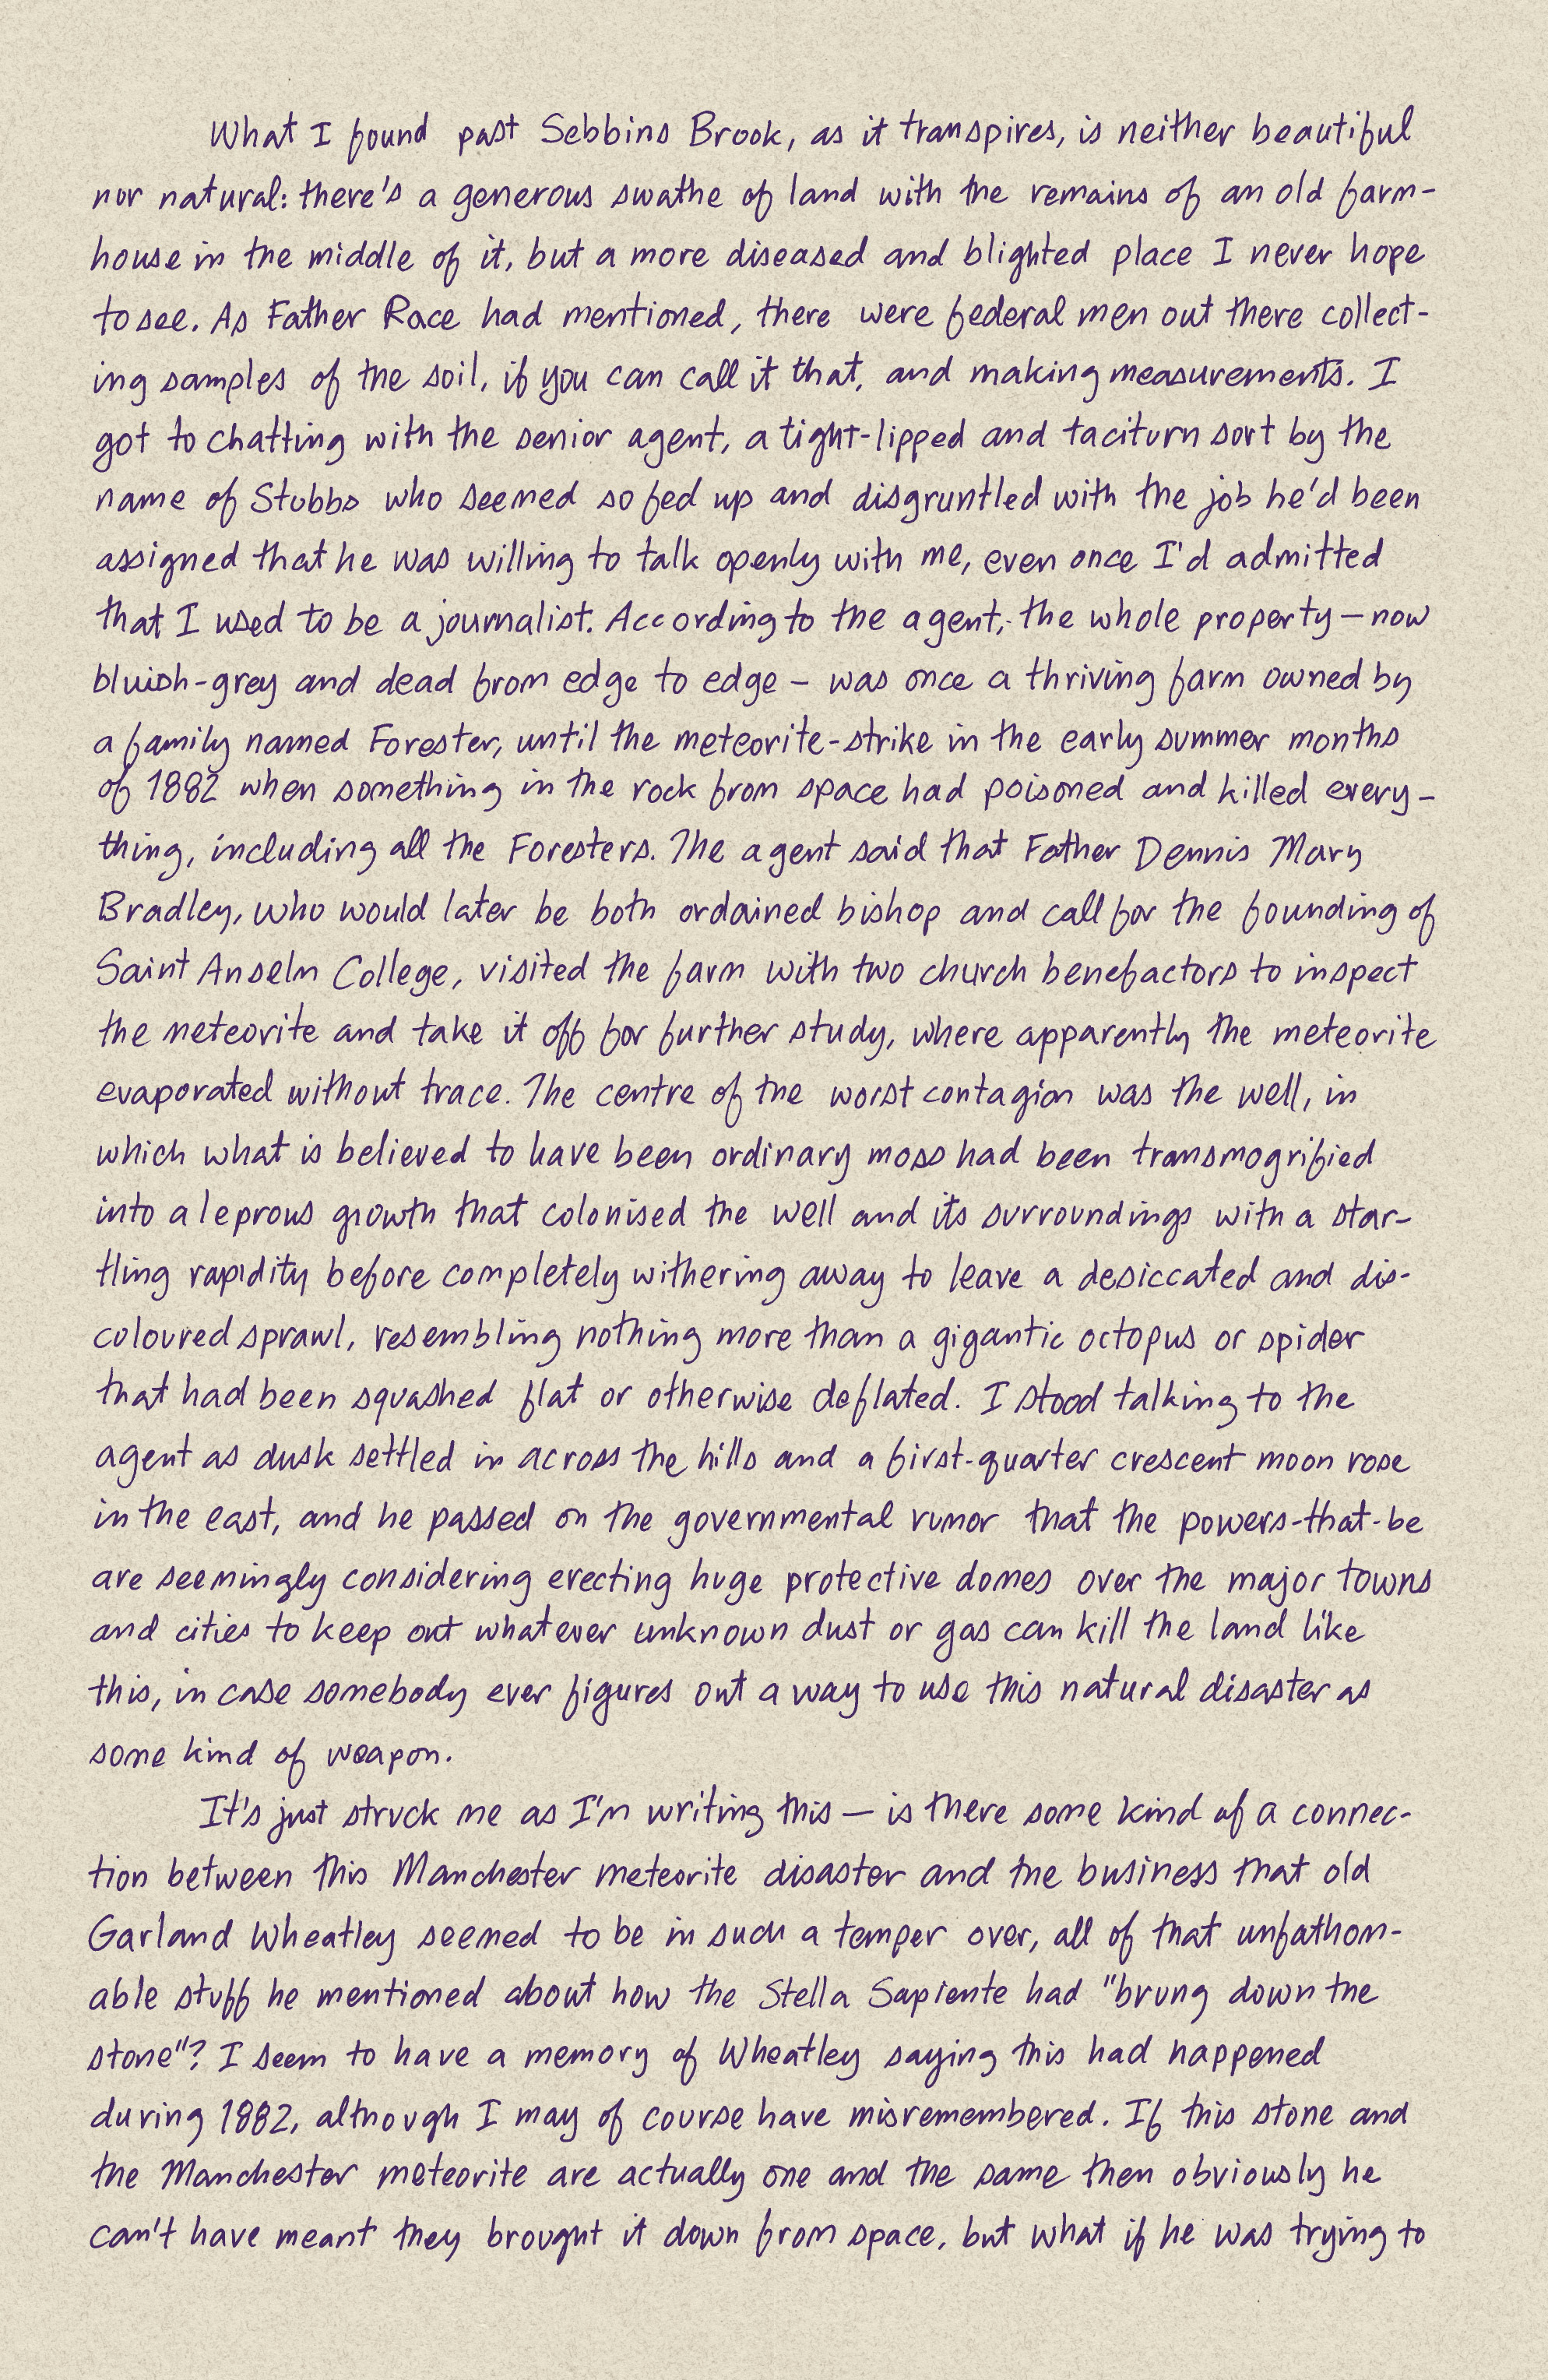 What I found past Sebbins Brook, as it transpires, is neither beautiful
nor natural: there's a generous swathe of land with the remains of an old farm-
house in the middle of it, but a more diseased and blighted place I never hope
to see. As Father Race had mentioned, there were federal men out there collect-
ing samples of the soil, if you can call it that, and making measurements. I
got to chatting with the senior agent, a tight-lipped and taciturn sort by the
name of Stubbs who seemed so fed up and disgruntled with the job he'd been
assigned that he was willing to talk openly with me, even once I'd admitted
that I used to be a journalist. According to the agent, the whole property — now
bluish-grey and dead from edge to edge — was once a thriving farm owned by
a family named Forester, until the meteorite-strike in the early summer months
of 1882 when something in the rock from space had poisoned and killed every-
thing, including all the Foresters. The agent said that Father Dennis Mary
Bradley, who would later be both ordained bishop and call for the founding of
Saint Anselm College, visited the farm with two church benefactors to inspect
the meteorite and take it off for further study, where apparently the meteorite
evaporated without trace. The centre of the worst contagion was the well, in
which what is believed to have been ordinary moss had been transmogrified
into a leprous growth that colonised the well and its surroundings with a star-
tling rapidity before completely withering away to leave a desiccated and dis-
coloured sprawl, resembling nothing more than a gigantic octopus or spider
that had been squashed flat or otherwise deflated. I stood talking to the
agent as dusk settled in across the hills and a first-quarter crescent moon rose
in the east, and he passed on the governmental rumor that the powers-that-be
are seemingly considering erecting huge protective domes over the major towns
and cities to keep out whatever unknown dust or gas can kill the land like
this, in case somebody ever figures out a way to use this natural disaster as
some kind of weapon.
It's just struck me as I'm writing this — is there some kind of a connec-
tion between this Manchester meteorite disaster and the business that old
Garland Wheatley seemed to be in such a temper over, all of that unfathom-
able stuff he mentioned about how the Stella Sapiente had "brung down the
stone"? I seem to have a memory of Wheatley saying this had happened
during 1882, although I may of course have misremembered. If this stone and
the Manchester meteorite are actually one and the same then obviously he
can't have meant they brought it down from space, but what if he was trying to